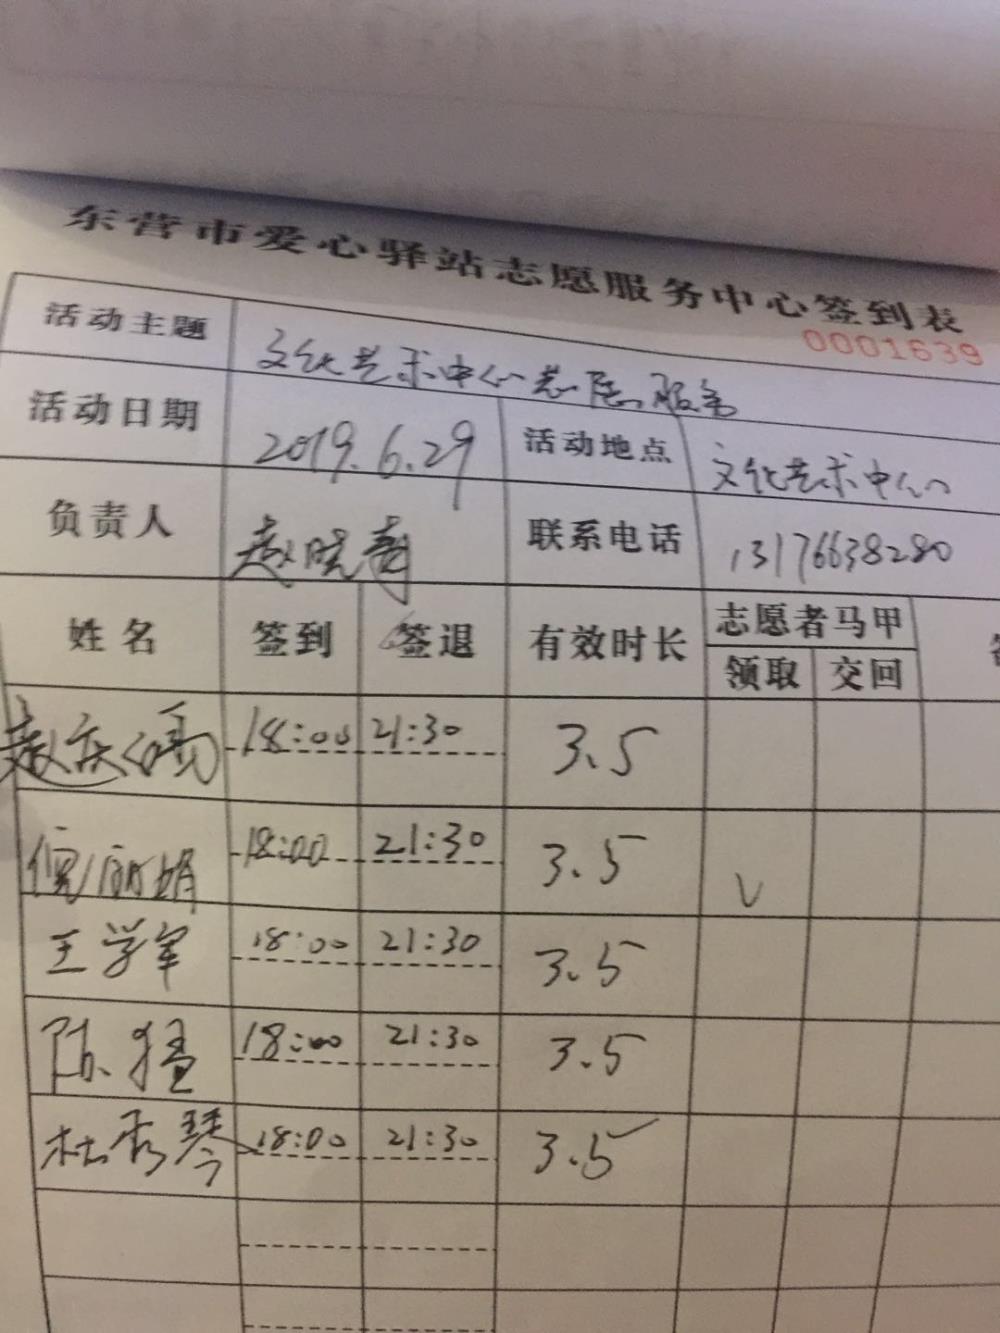 东营市爱心驿站志愿服务中心签到表
0001639
活动主题 文化艺术中心志愿服务
活动日期 2019.6.29 活动地点 文化艺术中心
负责人 赵晓青 联系电话 13176638280
姓名 签到 签退 有效时长 志愿者马甲
领取 交回
18:00 21:30 3.5
倪丽娟 18:00 21:30 3.5 V
王学军 18:00 21:30 3.5
陈猛 18:00 21:30 3.5
杜秀琴 18:00 21:30 3.5